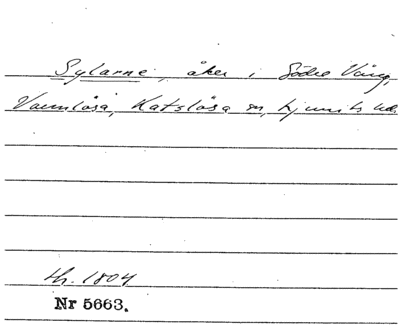 Sylarne, åker i Södre Vång,
Varmlösa, Katslösa sn, Ljunits hd.
h. 1804
Nr 5663.